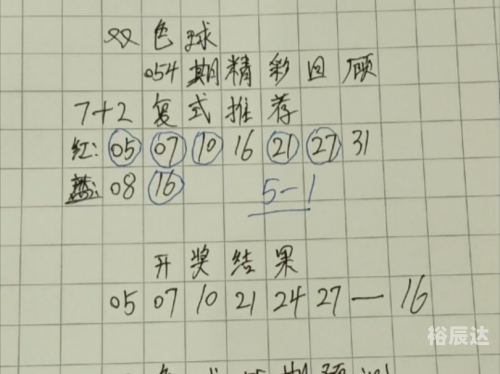 双色球
054期精彩回顾
7+2 复式推荐
红: 05 07 10 16 21 27 31
蓝: 08 16 5-1
开奖结果
05 07 10 21 24 27 — 16
裕辰达